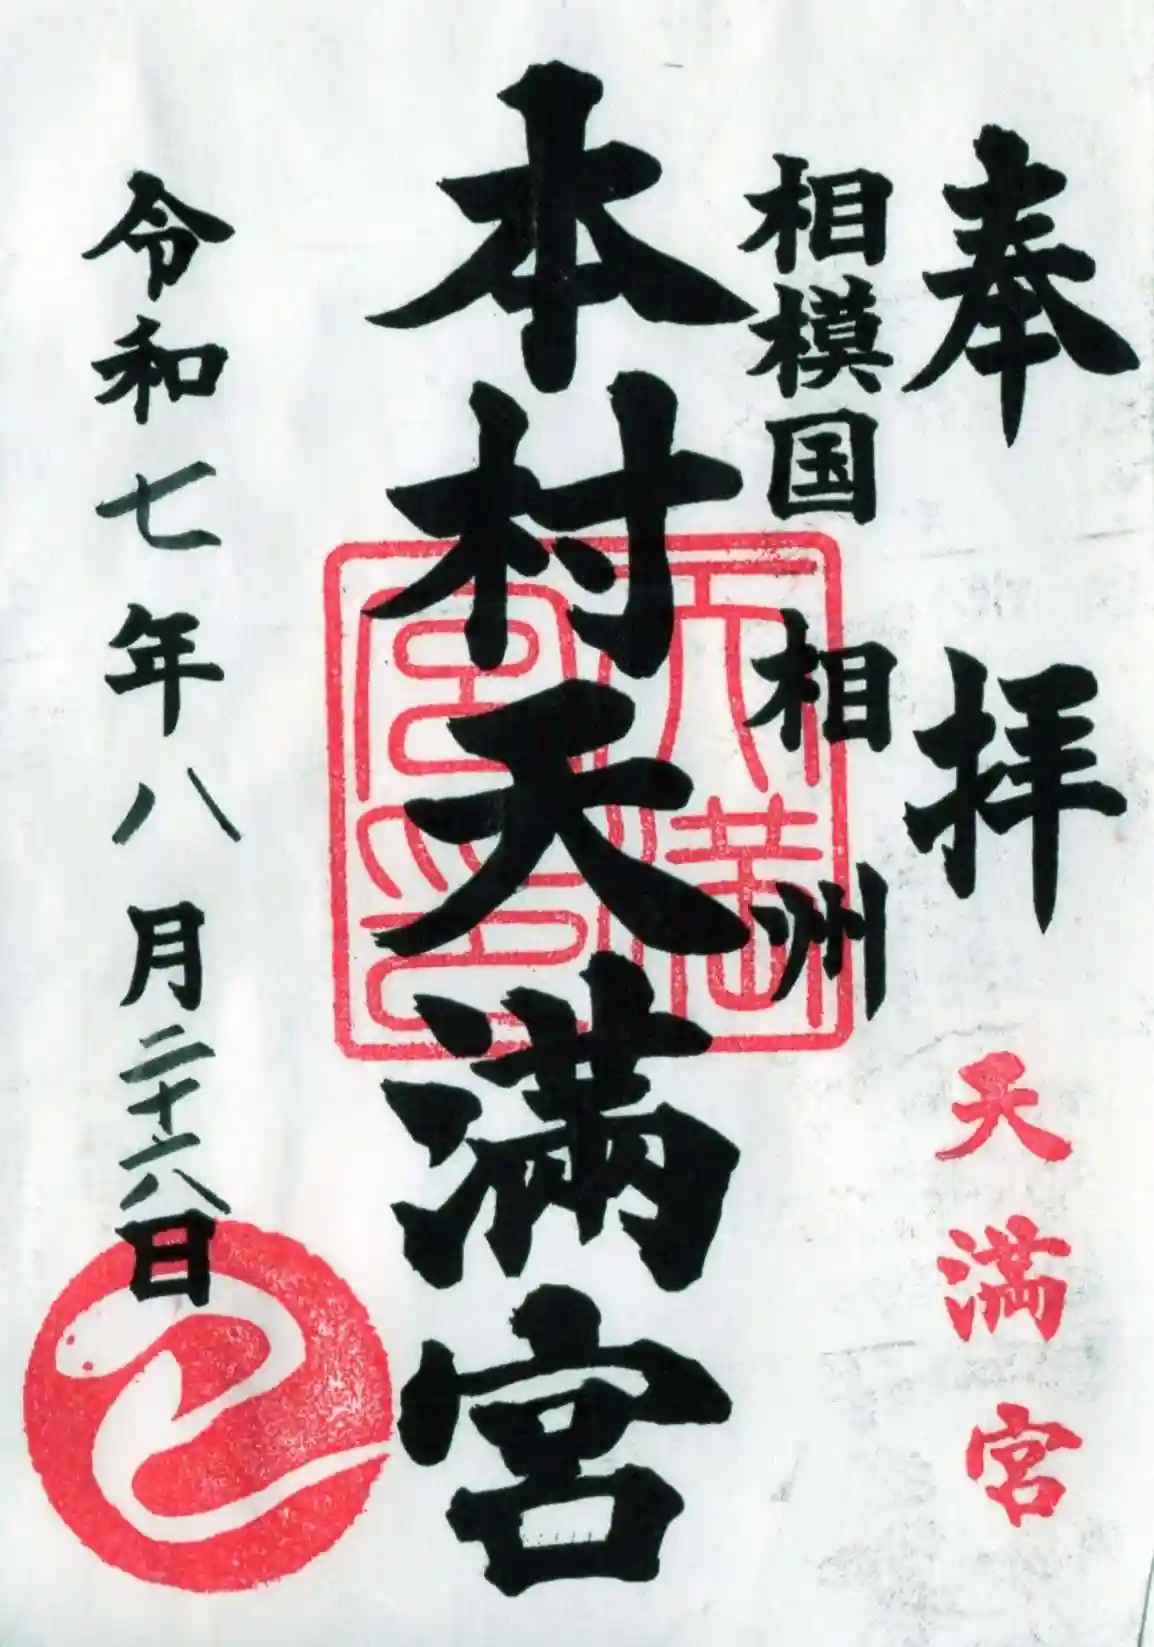 奉拝
天満宮
相模国 相州
本村天満宮
天満
宮印
令和七年八月二十六日